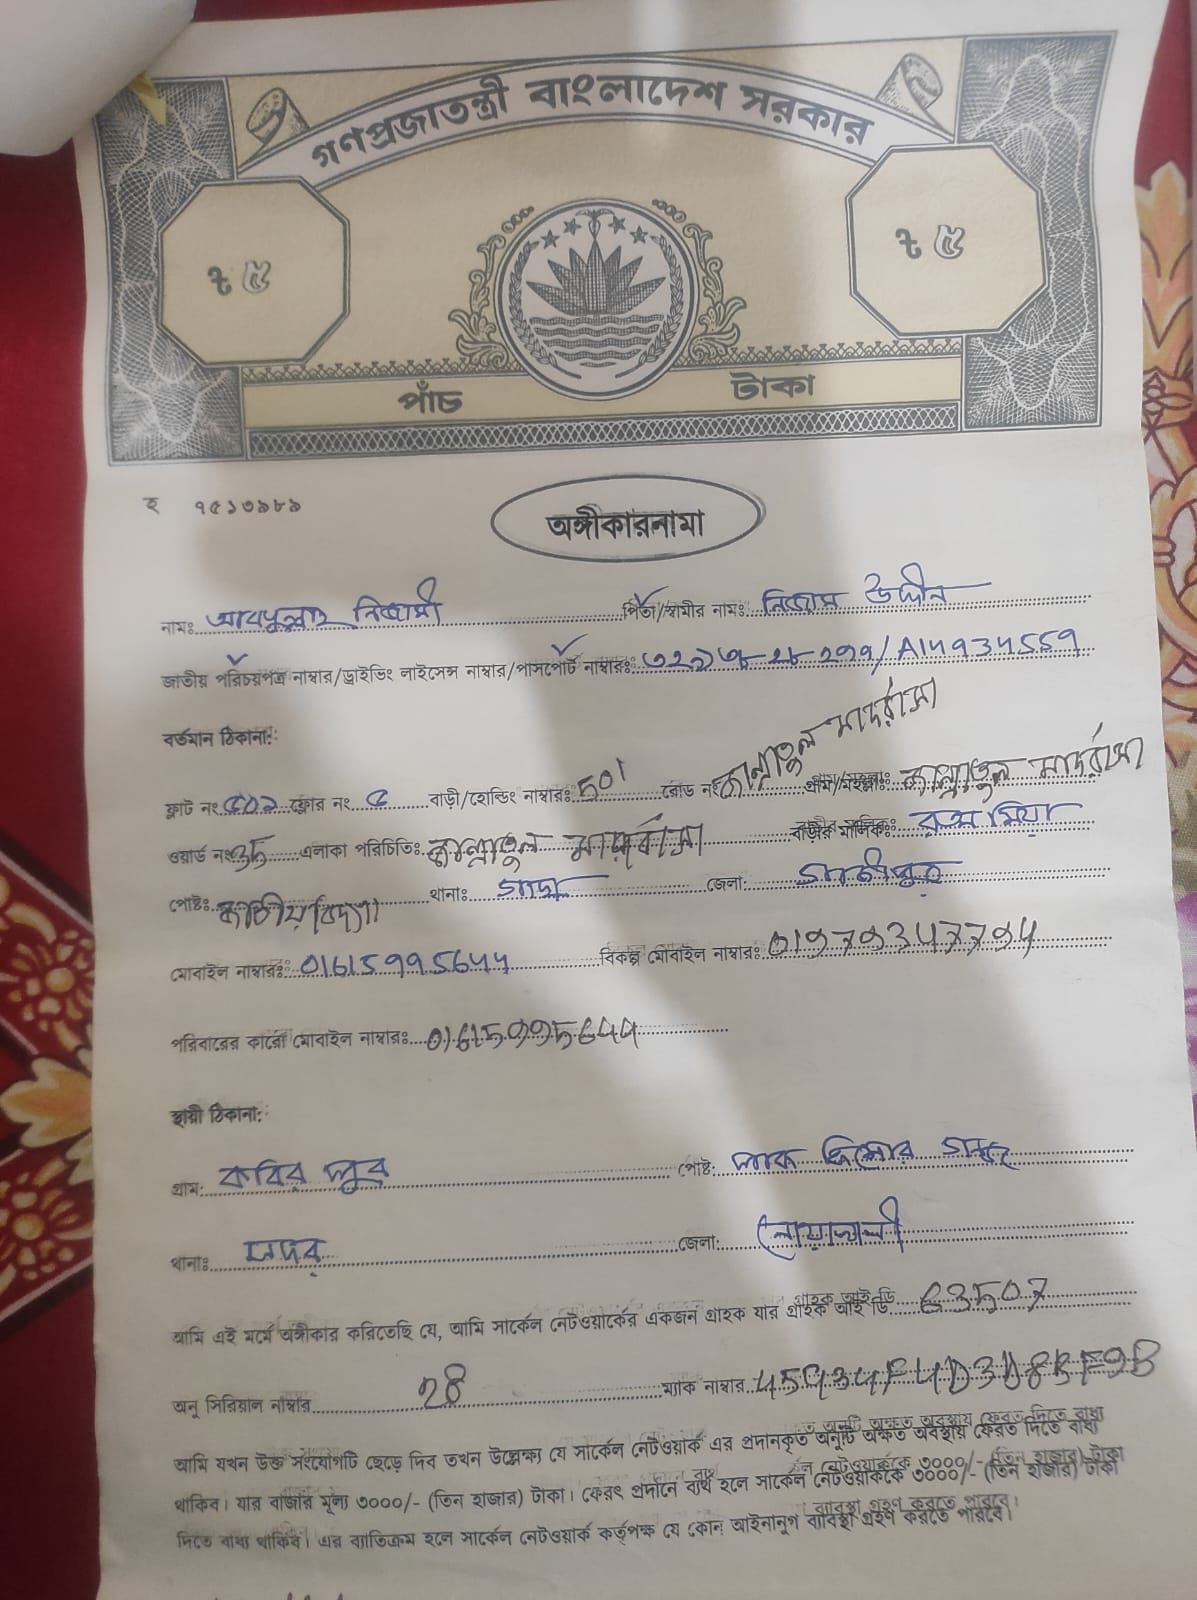 গণপ্রজাতন্ত্রী বাংলাদেশ সরকার
৳ ৫ ৳ ৫
পাঁচ টাকা
ৼ ৭৫১৩৯৮৯
অঙ্গীকারনামা
নামঃ আবদুল্লাহ নিজামী পিতা/স্বামীর নামঃ নিজাম উদ্দীন
জাতীয় পরিচয়পত্র নাম্বার/ড্রাইভিং লাইসেন্স নাম্বার/পাসপোর্ট নাম্বারঃ
বর্তমান ঠিকানা:
ফ্লাট নং ৫০১ ফ্লোর নং ৫ বাড়ী/হোল্ডিং নাম্বারঃ 501 রোড নং গ্রাম/মহল্লাঃ
ওয়ার্ড নংঃ 35 এলাকা পরিচিতিঃ বাড়ীর মালিকঃ
পোষ্টঃ থানাঃ গাছা জেলা: গাজীপুর
মোবাইল নাম্বারঃ 01615995644 বিকল্প মোবাইল নাম্বারঃ
পরিবারের কারো মোবাইল নাম্বারঃ 01615995644
স্থায়ী ঠিকানা:
গ্রাম: কবির পুর পোষ্ট:
থানাঃ সদর জেলা: নোয়াখালী
আমি এই মর্মে অঙ্গীকার করিতেছি যে, আমি সার্কেল নেটওয়ার্কের একজন গ্রাহক যার গ্রাহক আই ডি 63507
অনু সিরিয়াল নাম্বার 28 ম্যাক নাম্বার
আমি যখন উক্ত সংযোগটি ছেড়ে দিব তখন উল্লেক্ষ্য যে সার্কেল নেটওয়ার্ক এর প্রদানকৃত অনুটি অক্ষত অবস্থায় ফেরত দিতে বাধ্য
থাকিব। যার বাজার মূল্য ৩০০০/- (তিন হাজার) টাকা। ফেরৎ প্রদানে ব্যর্থ হলে সার্কেল নেটওয়ার্ককে ৩০০০/- (তিন হাজার) টাকা
দিতে বাধ্য থাকিব। এর ব্যতিক্রম হলে সার্কেল নেটওয়ার্ক কর্তৃপক্ষ যে কোন আইনানুগ ব্যবস্থা গ্রহণ করতে পারবে।